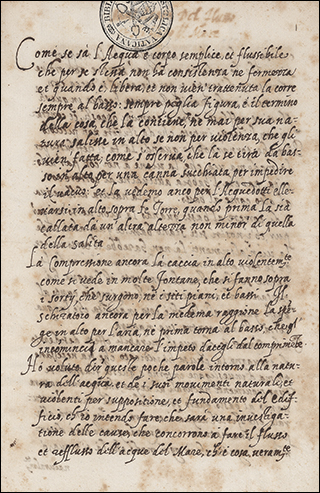 BIBLIOTECA VATICANA
Come se sà l'Acqua è corpo semplice, et flussibile
che per se stessa non hà consistenza ne fermezza
et quando è libera, et non vien trattenuta là corre
sempre al basso: sempre piglia figura, e il termino
della cosa che la contiene, ne mai per sua na
tura saline in alto se non per violenza, che gli
vien fatta come s'osserva che là se tira da bas
so in alto per una canna succhiata per impedire
il vacuo: et la vedemo anco per l'Acquedotti elle
varsi in alto sopra le Torre, quando prima là sia
callata da un'altra altezza non minor di quella
della salita
La Compressione ancora la caccia in alto violentemte
come si vede in molte Fontane, che si fanno sopra
i sorty che surgono ne i siti piani, et bassi
schizzatoio ancora per la medema raggione la spi
ge in alto per l'aria, ne prima torna al basso, che
incomincia a mancare l'impeto datogli dal comprimente
Hò voluto dir queste poche parole intorno alla natu
ra dell'acqua, et de i suoi movimenti naturali, et
violenti per suppositione, et fundamento del edif
ficio, ch'io intendo fare, che sarà una investiga
tione delle cause, che concorrono a fare il flusso
et reflusso dell'acque del Mare, ch'è cosa veramte